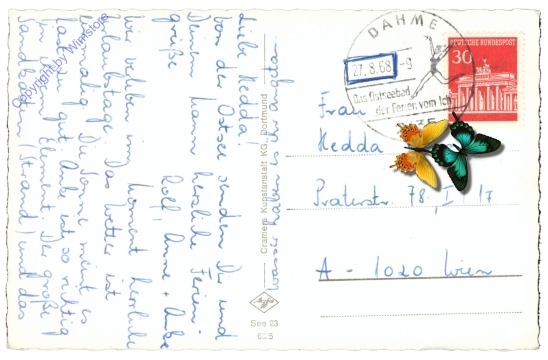 Liebe Hedda!
Von der Ostsee senden Dir und
Deinem Mann herzliche Ferien-
grüße Rolf, Anne + Anke
Wir verleben im Moment herrliche
Urlaubstage. Das Wetter ist
Die Sonne meint es
gut. Anke ist so richtig
in ihrem Element. Der große
Sandkasten (Strand) und das
Wasser haben es
DAHME
27.8.68-9
Das Ostseebad
der Ferien vom Ich
DEUTSCHE BUNDESPOST
30
Frau
Hedda
Praterstr. 78, I 17
A - 1020 Wien
Cramers Kunstanstalt KG, Dortmund
Agfa
See 23
Copyright by Winstore